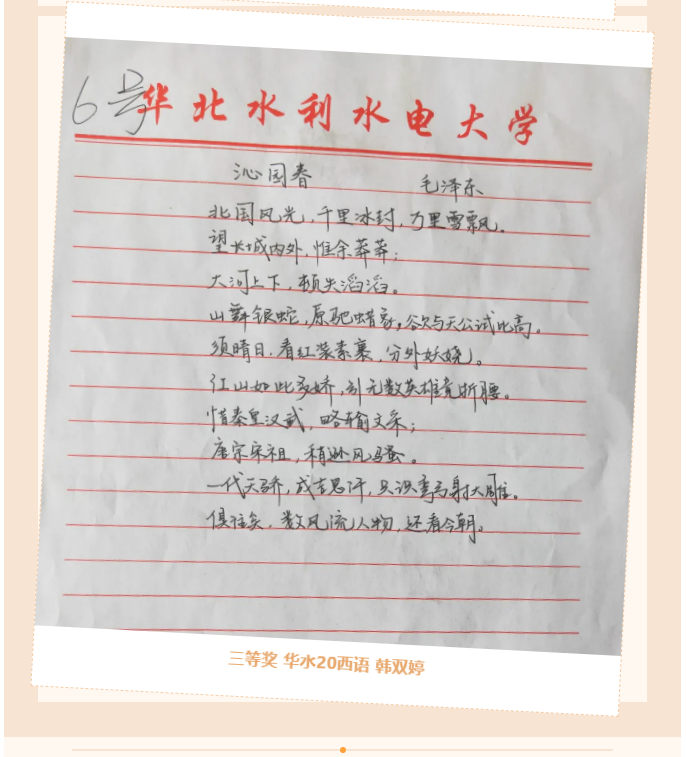 6号
华北水利水电大学
沁园春 毛泽东
北国风光，千里冰封，万里雪飘。
望长城内外，惟余莽莽；
大河上下，顿失滔滔。
山舞银蛇，原驰蜡象，欲与天公试比高。
须晴日，看红装素裹，分外妖娆。
江山如此多娇，引无数英雄竞折腰。
惜秦皇汉武，略输文采；
唐宗宋祖，稍逊风骚。
一代天骄，成吉思汗，只识弯弓射大雕。
俱往矣，数风流人物，还看今朝。
三等奖 华水20西语 韩双婷